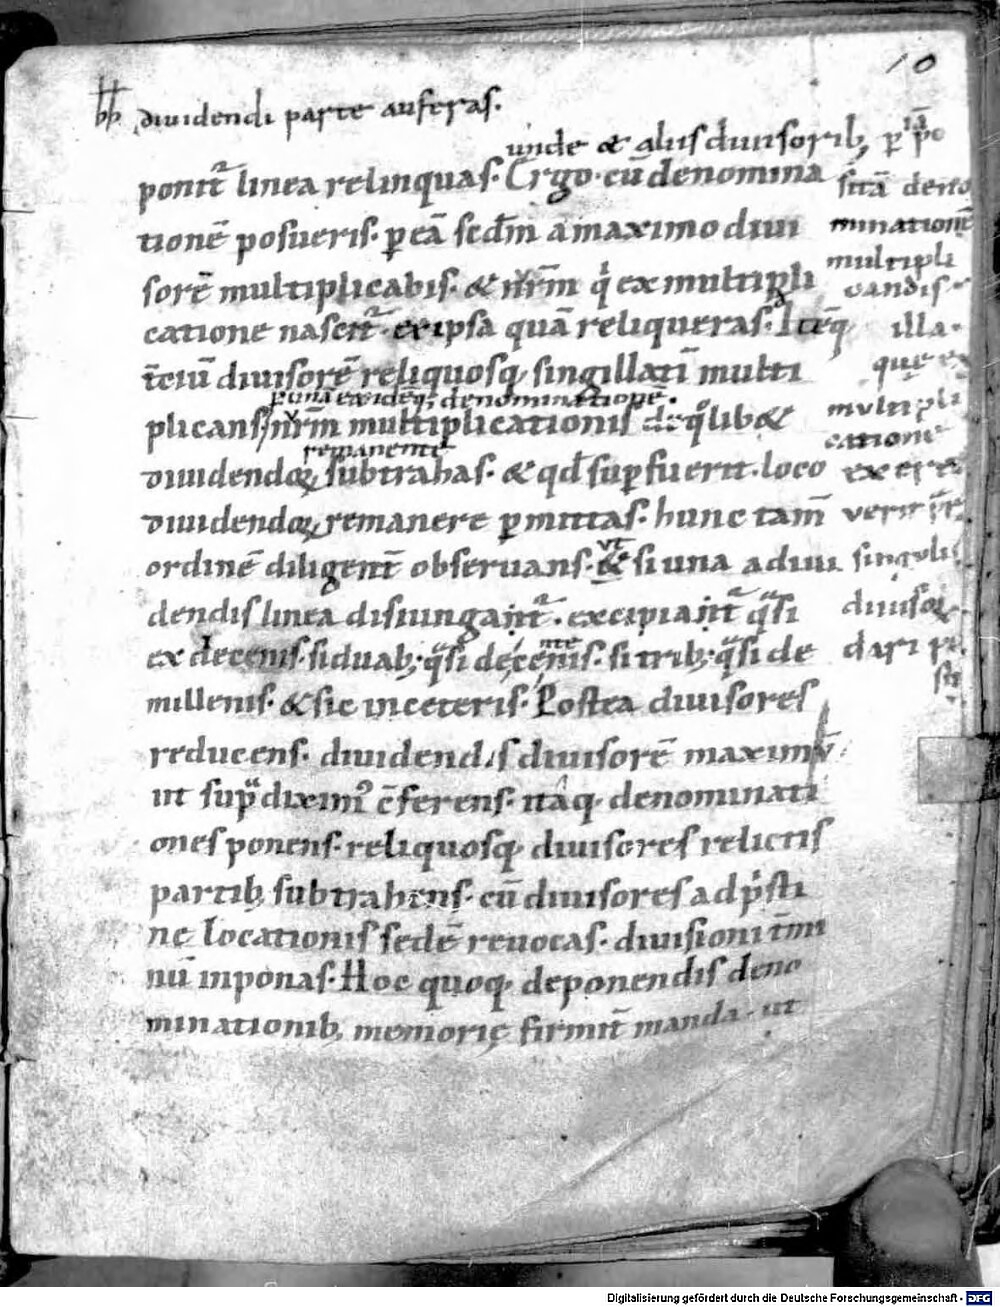 10
diuidendi parte auferas.
unde & aliis diuisorib; p̄
ponit᷑ linea relinquas. Ergo. cū denomina
tionē posueris. p eā sedm̄ a maximo diui
sorē multiplicabis. & nr̄m q́ ex multipli
catione nascit᷑. ex ipsa quā reliqueras. Itēq;
t̄ciū diuisorē reliquosq; singillatī multi
plicans / nr̄m multiplicationis de q̊lib&
remanente
diuidendoꝝ subtrahas. & qd̄ supfuerit. loco
diuidendoꝝ remanere pmittas. hunc tam̄
ordinē diligent̄ obseruans. ut si una a diui
dendis linea disiungant᷑. excipiant᷑ qᷓsi
ex decenis. si duab; qᷓsi decenis. si trib; qᷓsi de
millenis. & sic in ceteris. Postea diuisores
reducens. diuidendis diuisorē maximū
ut supᷓ diximꝰ c̄ferens. itaq; denominati
ones ponens. reliquosq; diuisores relictis
partib; subtrahens. cū diuisores ad p̓sti
nę locationis sedē reuocas. diuisioni t̄mi
nū inponas. Hoc quoq; de ponendis deno
minationib; memorię firmit̄ manda. ut
sitā deno
minationē
multipli
candis
illa.
que ex
multipli
catione
singulis
diuisoꝝ
dari
Digitalisierung gefördert durch die Deutsche Forschungsgemeinschaft - DFG